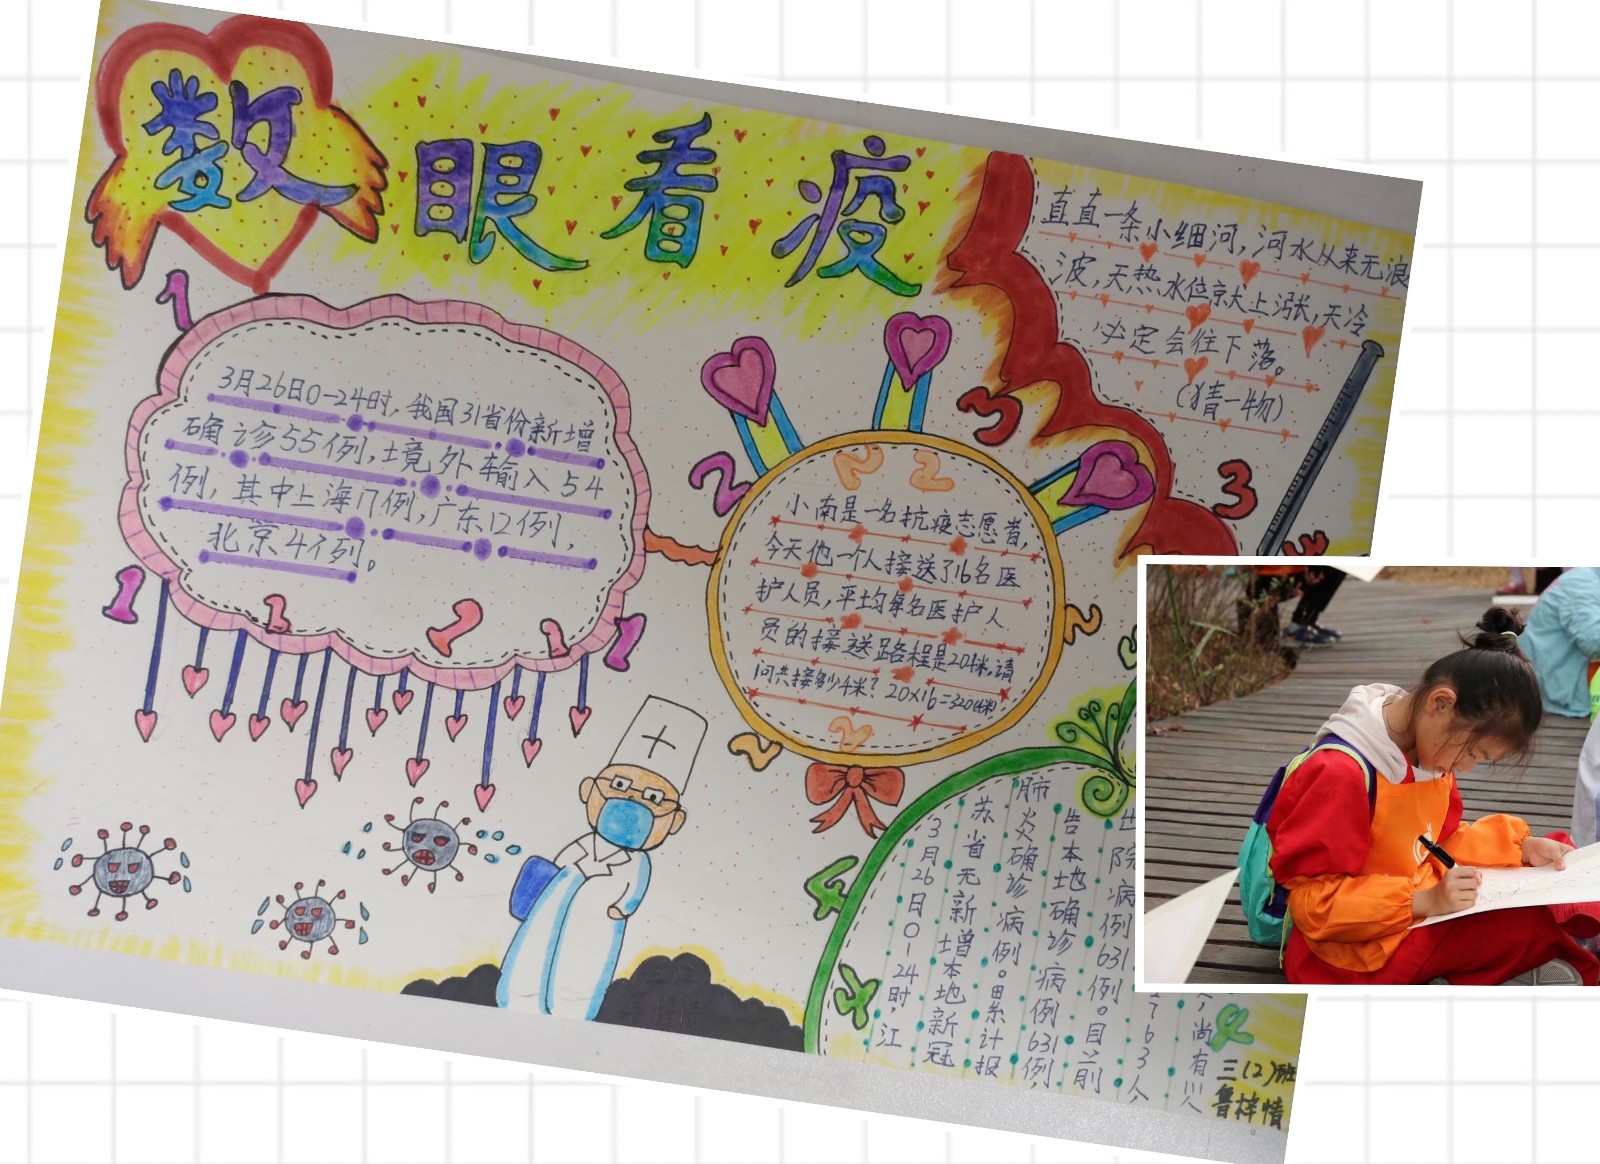 数眼看疫
3月26日0-24时,我国31省份新增
确诊55例,境外输入54
例,其中上海17例,广东12例,
北京4例。
小南是一名抗疫志愿者,
今天他一个人接送了16名医
护人员,平均每名医护人
员的接送路程是20千米,请
问共接多少千米?20×16=320(千米)
直直一条小细河,河水从来无浪
波,天热水位就大上涨,天冷
必定会往下落。
(猜一物)
3月26日0-24时,江
苏省无新增本地新冠
肺炎确诊病例。累计报
告本地确诊病例631例,
出院病例631例。目前
763人,
尚有
三(2)班
鲁梓情